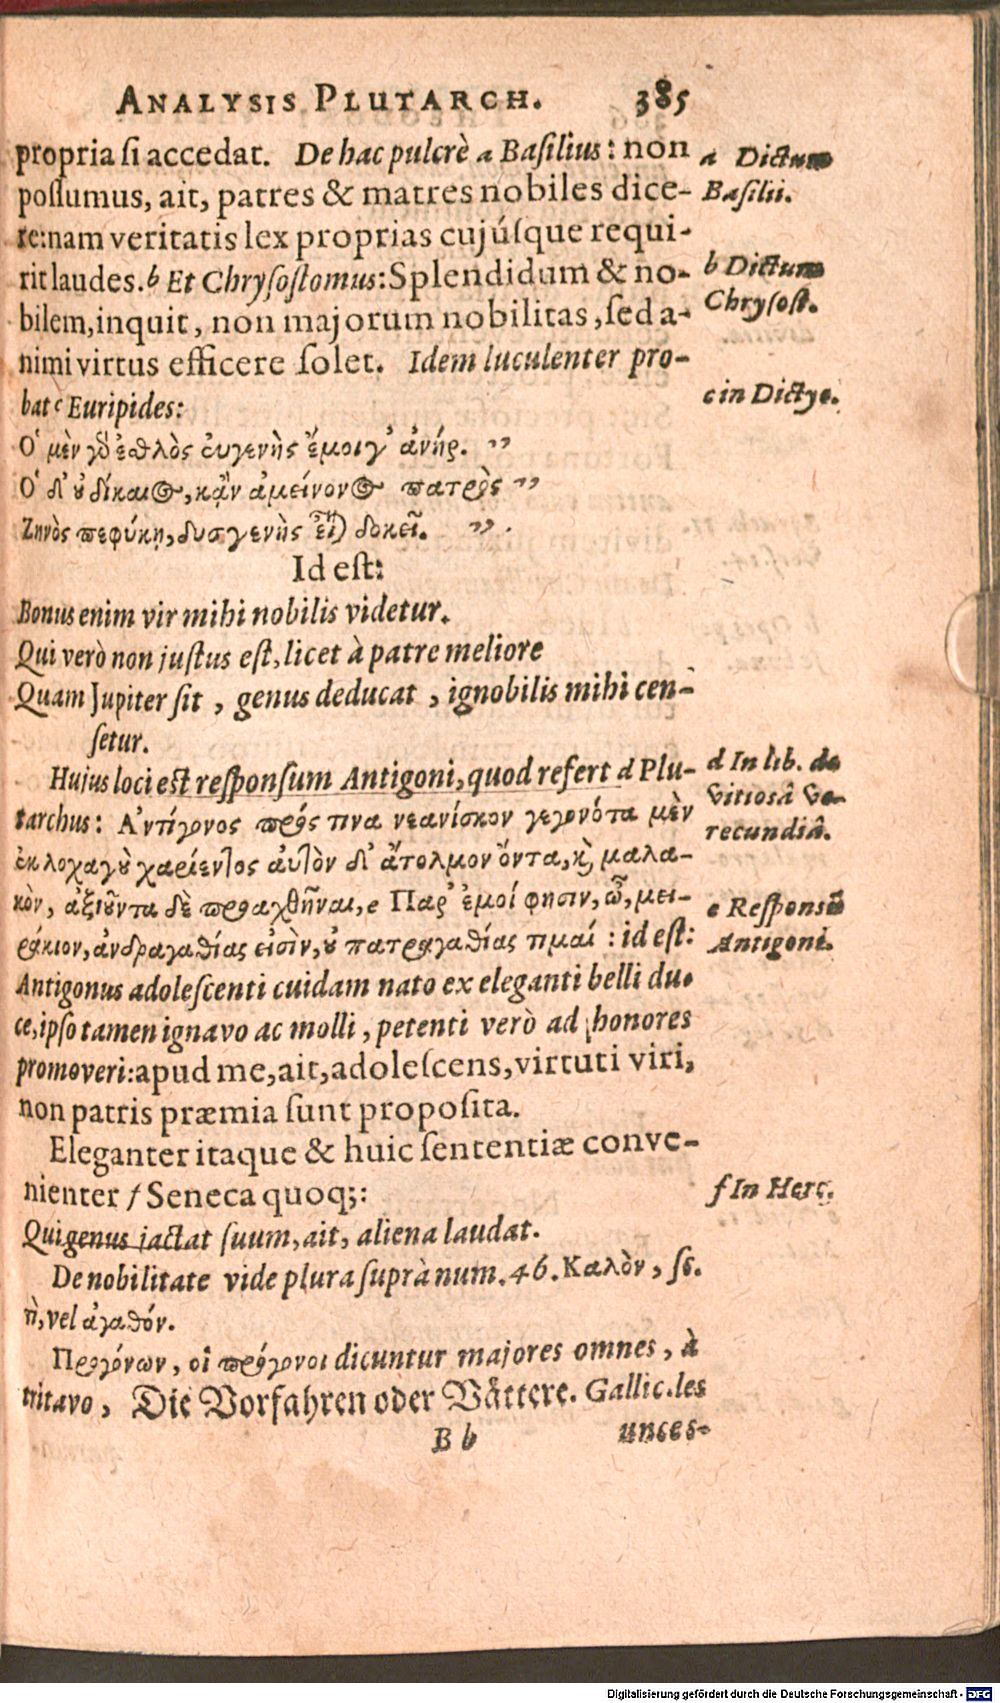 ANALYSIS PLUTARCH. 385
propria ſi accedat. De hac pulcrè a Baſilius: non
poſſumus, ait, patres & matres nobiles dice-
re: nam veritatis lex proprias cujúſque requi-
rit laudes. b Et Chryſoſtomus: Splendidum & no-
bilem, inquit, non majorum nobilitas, ſed a-
nimi virtus efficere ſolet. Idem luculenter pro-
bat c Euripides:
Ὁ μὲν γὸ ἐσθλὸς εὐγενὴς ἔμοιγ' ἀνήρ. ”
Ὁ δ' ȣ δίκαιος, κᾂν ἀμείνονος πατρὸς ”
Ζηνὸς πεφύκῃ, δυσγενὴς εἶναι δοκεῖ. ”
Id eſt:
Bonus enim vir mihi nobilis videtur.
Qui verò non juſtus eſt, licet à patre meliore
Quam Jupiter ſit, genus deducat, ignobilis mihi cen-
ſetur.
Hujus loci est reſponſum Antigoni, quod refert d Plu-
tarchus: Ἀντίγονος πρός τινα νεανίσκον γεγονότα μὲν
ἐκ λοχαγȣ͂ χαρίεντος αὐτὸν δ' ἄτολμον ὄντα, ϗ μαλα-
κὸν, ἀξιȣ͂ντα δὲ προαχθῆναι, e Παρ' ἐμοί φησιν, ὦ, μει-
ράκιον, ἀνδραγαθίας εἰσὶν, ȣ πατραγαθίας τιμαί: id eſt:
Antigonus adoleſcenti cuidam nato ex eleganti belli du-
ce, ipſo tamen ignavo ac molli, petenti verò ad honores
promoveri: apud me, ait, adoleſcens, virtuti viri,
non patris præmia ſunt propoſita.
Eleganter itaque & huic ſententiæ conve-
nienter f Seneca quoq;:
Qui genus jactat ſuum, ait, aliena laudat.
De nobilitate vide plura ſuprà num. 46. Καλὸν, ſc.
ἢ, vel ἀγαθόν.
Προγόνων, οἱ πρόγονοι dicuntur majores omnes, à
tritavo, Die Vorfahren oder Vättere. Gallic. les
B b unces-
a Dictum
Baſilii.
b Dictum
Chryſoſt.
c in Dictye.
d In lib. de
vitiosâ ve-
recundiâ.
e Reſponsũ
Antigoni.
f In Herc.
Digitalisierung gefördert durch die Deutsche Forschungsgemeinschaft - DFG